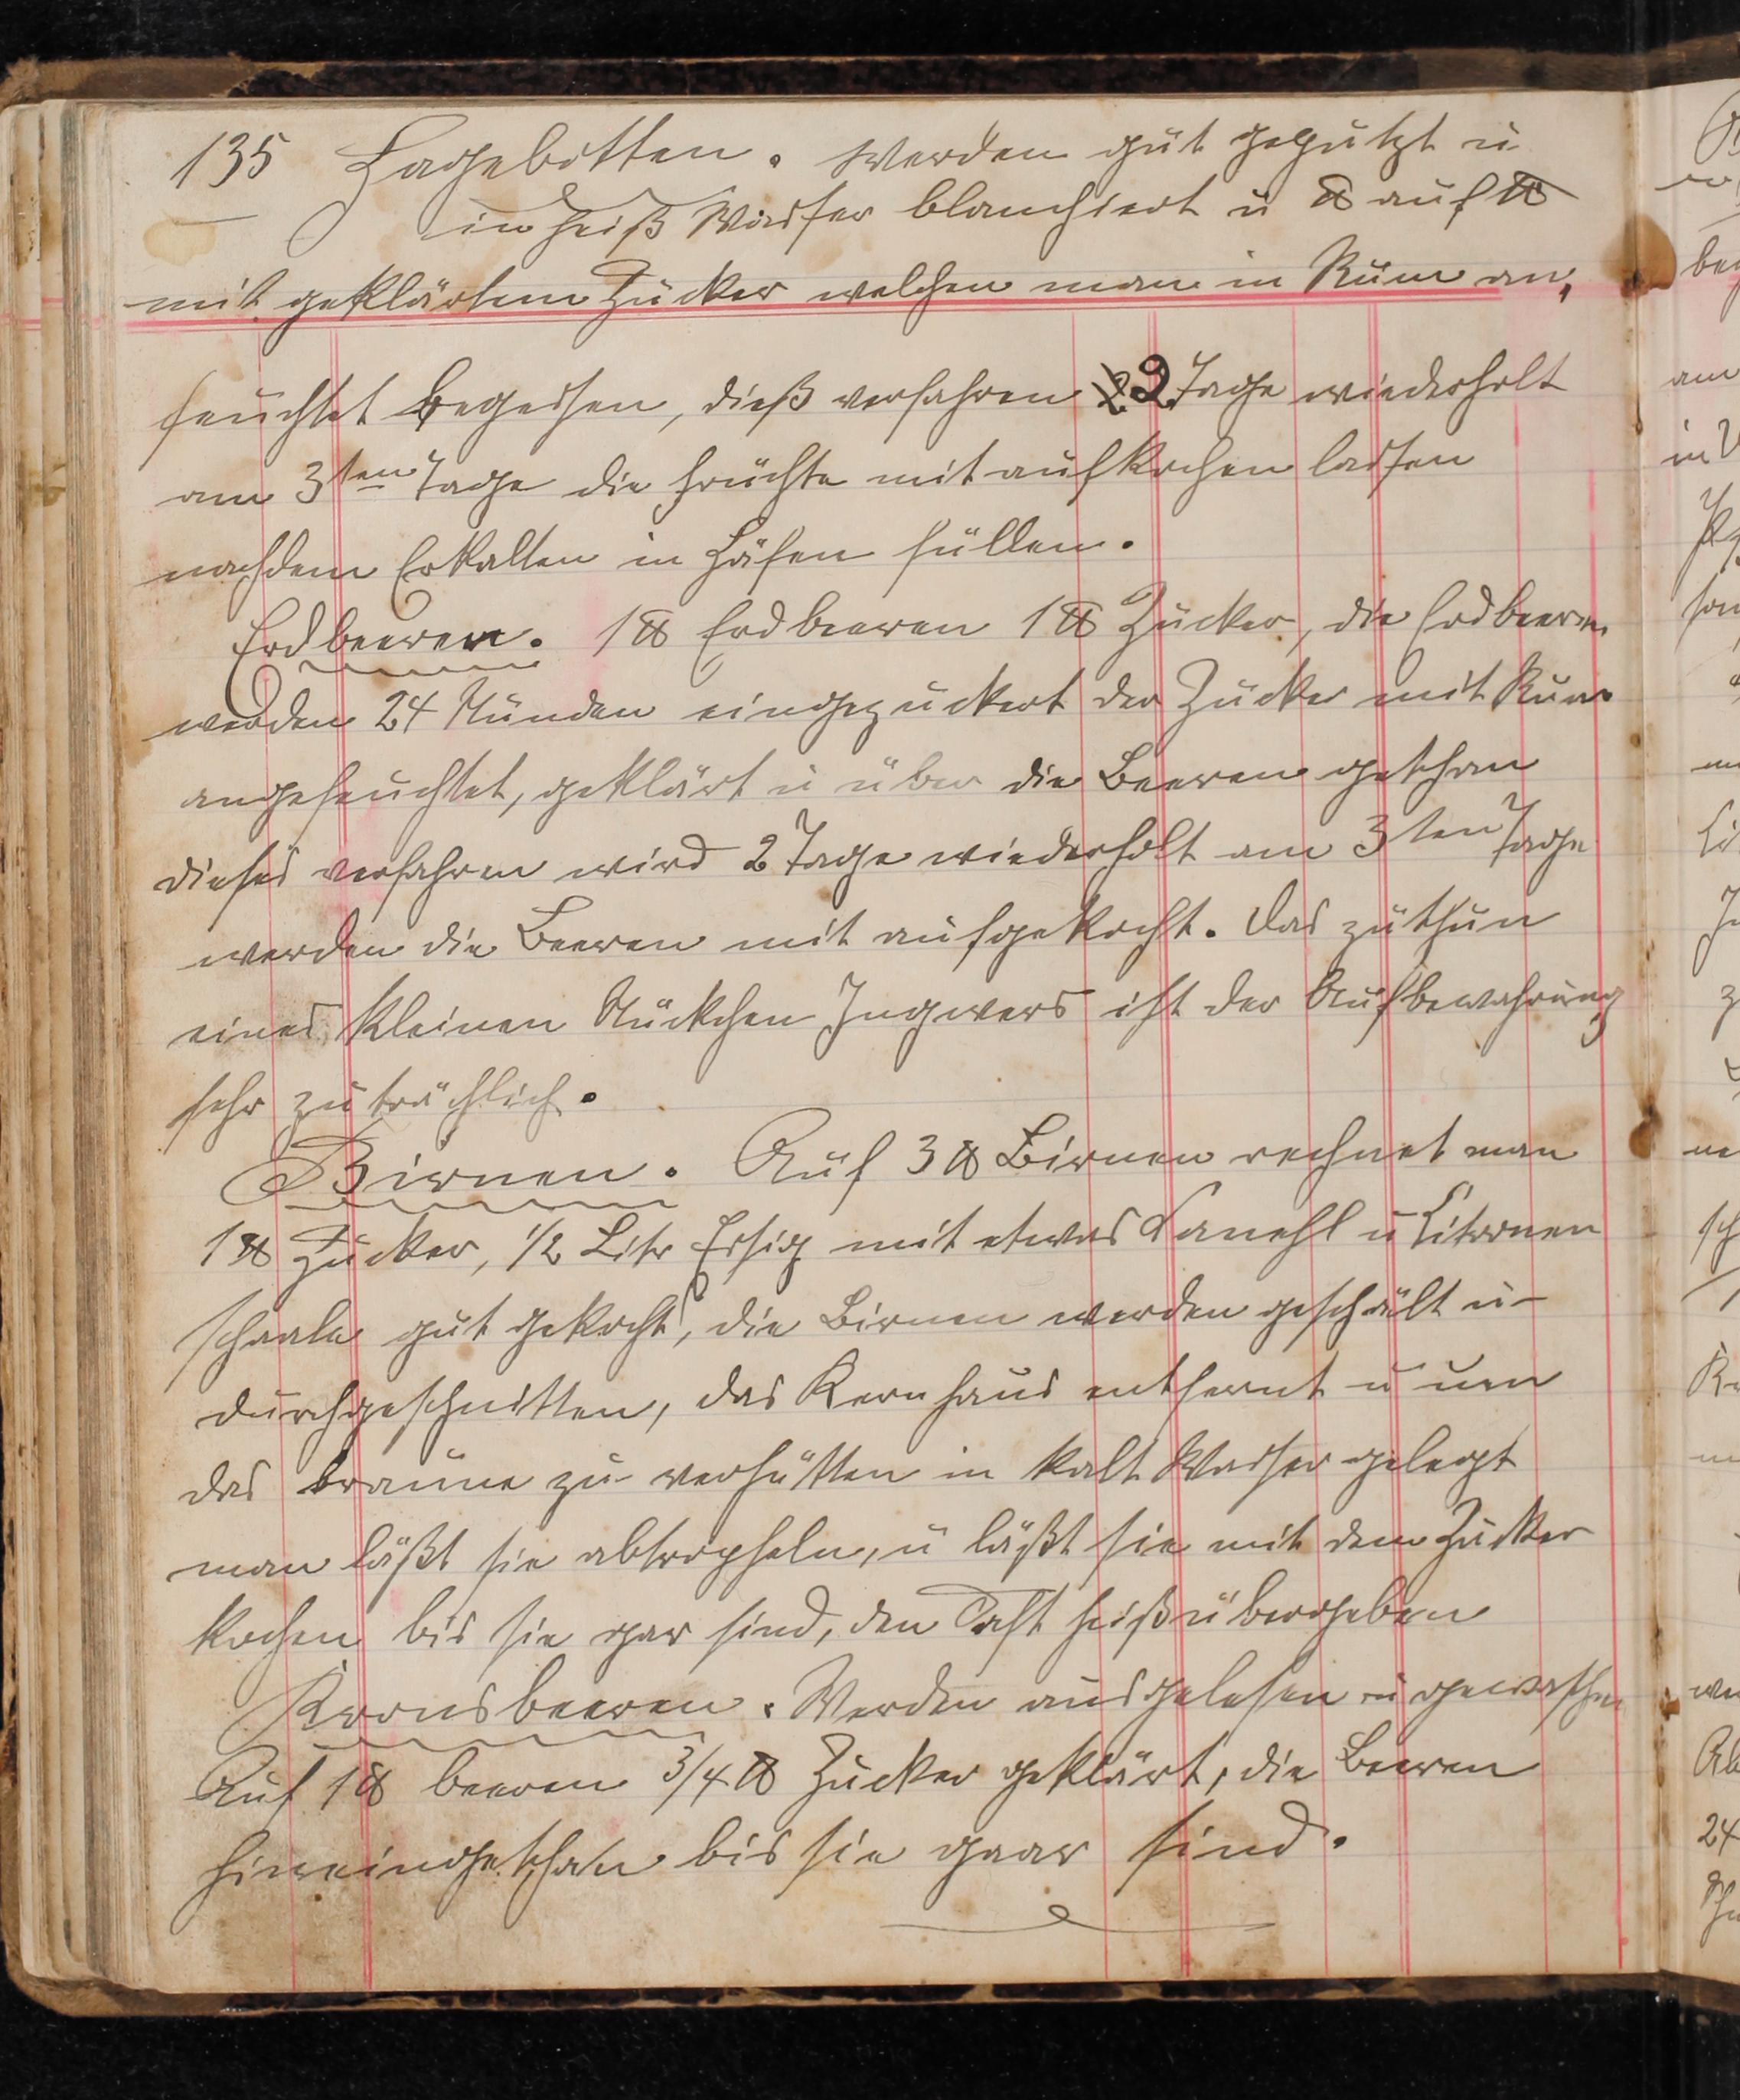 135 Hagebutten. Werden gut geputzt u
in heiß Wasser blanchiert u ℔ auf ℔
mit geklärtem Zucker welchen man in Rum an,
feuchtet begossen, dieß verfahren 2 Tage wiederholt
am 3ten Tage die Früchte mit aufkochen lassen
nachdem Erkalten in Häfen füllen.
Erdbeeren. 1 ℔ Erdbeeren 1 ℔ Zucker, die Erdbeeren
werden 24 Stunden eingezuckert der Zucker mit Rum
angefeuchtet, geklärt u über die Beeren gethan
dieses verfahren wird 2 Tage wiederholt am 3ten Tage
werden die Beeren mit aufgekocht. Das zuthun
eines kleinen Stückchen Ingwers ist der Aufbewahrung
sehr zuträchlich.
Birnen. Auf 3 ℔ Birnen rechnet man
1 ℔ Zucker, 1/2 Litr Essig mit etwas Canehl u Citronen
schaale gut gekocht, die Birnen werden geschält u
durchgeschnitten, das Kernhaus entfernt u um
das braune zu verhütten in kalt Wasser gelegt
man läßt sie abtropfeln, u läßt sie mit dem Zucker
kochen bis sie gar sind, den Saft heiß übergeben
Kronsbeeren. Werden ausgelesen u gewaschen
Auf 1 ℔ beeren 3/4 ℔ Zucker geklärt, die Beeren
hineingethan bis sie gaar sind.